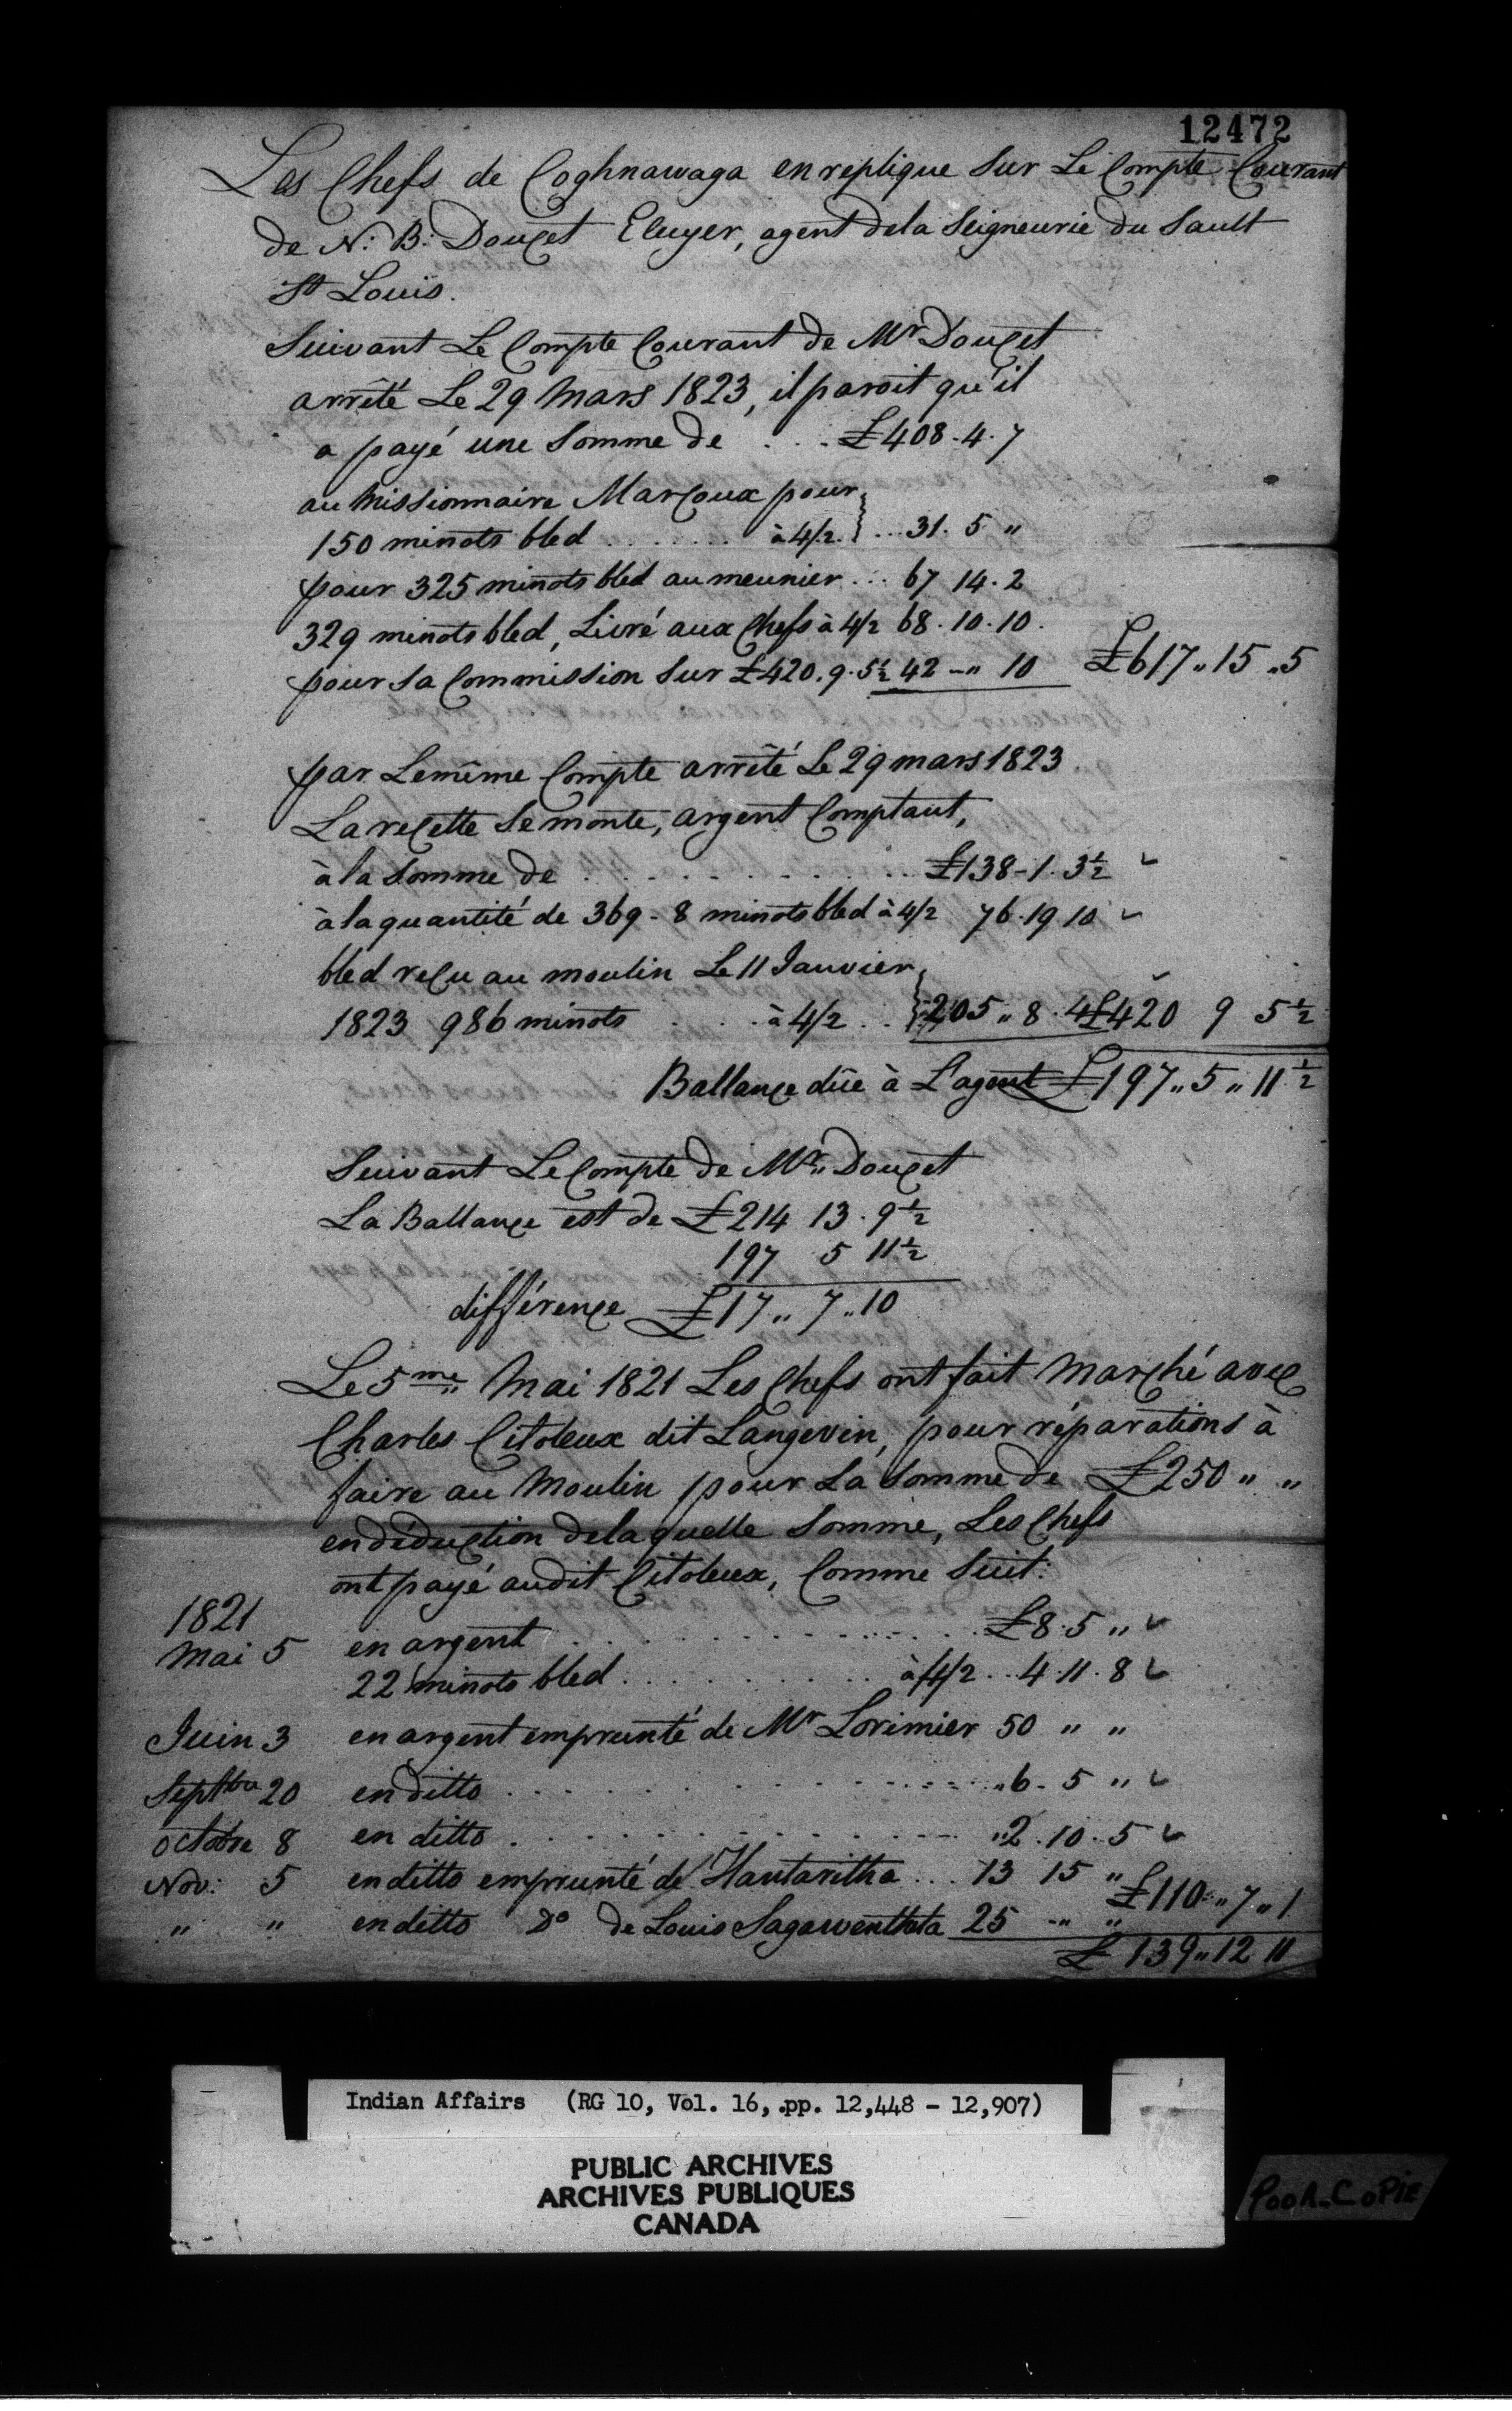 12472
Les Chefs de Coghnawaga en replique Sur Le Compte Courant
de N: B: Douçet Ecuyer, agent dela Seigneurie du Sault
St Louis.
Suivant Le Compte Courant de Mr Douçet
arrêté Le 29 Mars 1823, il paroit qu'il
a payé une Somme de . . . £408.4.7
au Missionnaire Marcoux pour
150 minots bled . . . . . . . à 4/2 } ... 31. 5 "
pour 325 minots bled au meunier ... 67 14.2
329 minots bled, Livré aux Chefs à 4/2 68.10.10.
pour Sa Commission Sur £420.9.5½ 42 -" 10 £617"15"5
par Lemême Compte arrêté Le 29 mars 1823.
La reçette Se monte, argent Comptant,
à la Somme de . . . . . . . . . . . £138-1.3½
à la quantité de 369-8 minots bled à 4/2 76.19.10
bled reçu au moulin Le 11 Janvier
1823 986 minots . . . à 4/2 .. } 205"8.4 £420 9 5½
Ballançe dûe à L'agent £197"5"11½
Suivant Le Compte de Mr" Douçet
La Ballançe est de £214 13.9½
197 5 11½
différençe £17"7"10
Le 5me" Mai 1821 Les Chefs ont fait Marché aveç
Charles Citoleux dit Langevin, pour réparations à
faire au Moulin pour La Somme de £250 " "
en déduction delaquelle Somme, Les Chefs
ont payé audit Citoleux, Comme Suit:
1821
Mai 5 en argent . . . . . . . . . . . £8.5 "
22 minots bled . . . . . . . . à 4/2 .. 4.11.8
Juin 3 en argent emprunté de Mr Lorimier 50 " "
Septbre 20 en ditto . . . . . . . . . . "6-5 "
octobre 8 en ditto . . . . . . . . . . "2.10.5
Nov: 5 en ditto emprunté de Hantaritha ... 13 15 " £110"7"1
" " en ditto Do de Louis Sagawenthata 25 -" "
£139"12 11
Indian Affairs (RG 10, Vol. 16, pp. 12,448 - 12,907)
PUBLIC ARCHIVES
ARCHIVES PUBLIQUES
CANADA
POOR COPIE